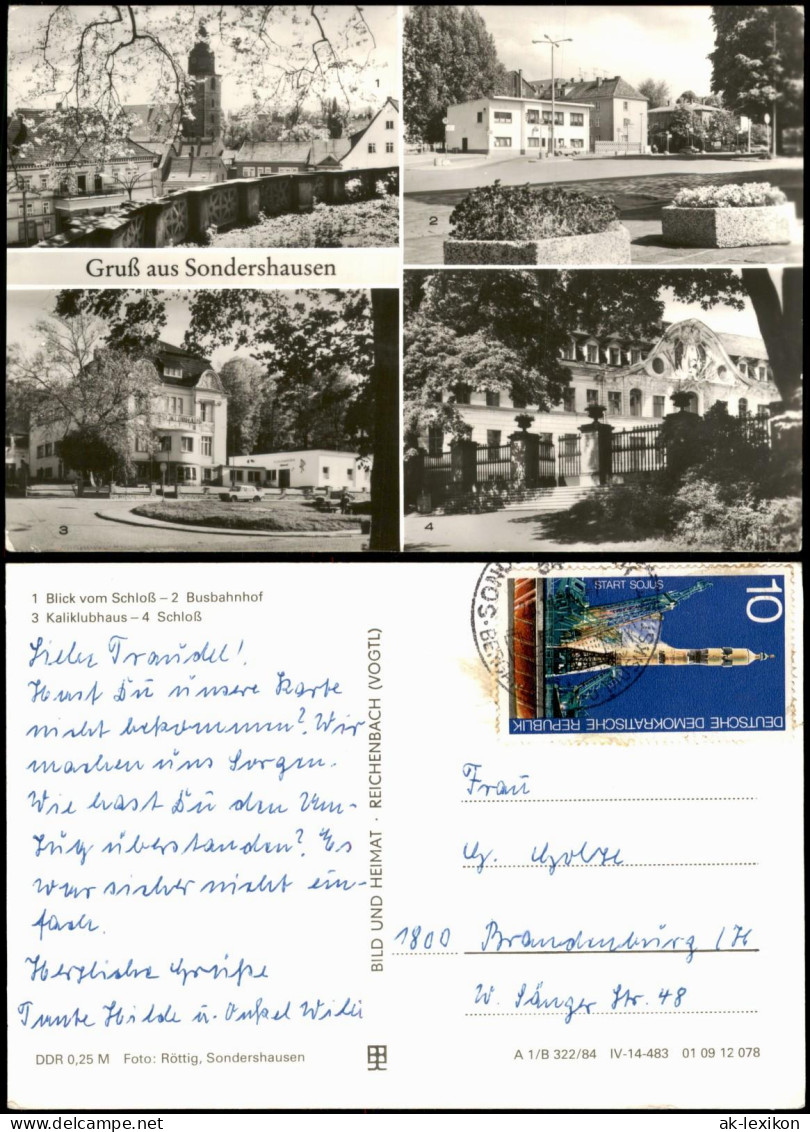 1
2
Gruß aus Sondershausen
3
4
1 Blick vom Schloß – 2 Busbahnhof
3 Kaliklubhaus – 4 Schloß
Liebe Traudel!
Hast Du unsere Karte
nicht bekommen? Wir
machen uns Sorgen.
Wie hast Du den Um-
zug überstanden? Es
war sicher nicht ein-
fach.
Herzliche Grüße
Tante Hilde u. Onkel Willi
DDR 0,25 M Foto: Röttig, Sondershausen
BILD UND HEIMAT · REICHENBACH (VOGTL)
START SOJUS
10
DEUTSCHE DEMOKRATISCHE REPUBLIK
Frau
G. Golze
1800 Brandenburg / H
W. Sänger Str. 48
A 1/B 322/84 IV-14-483 01 09 12 078
ak-lexikon